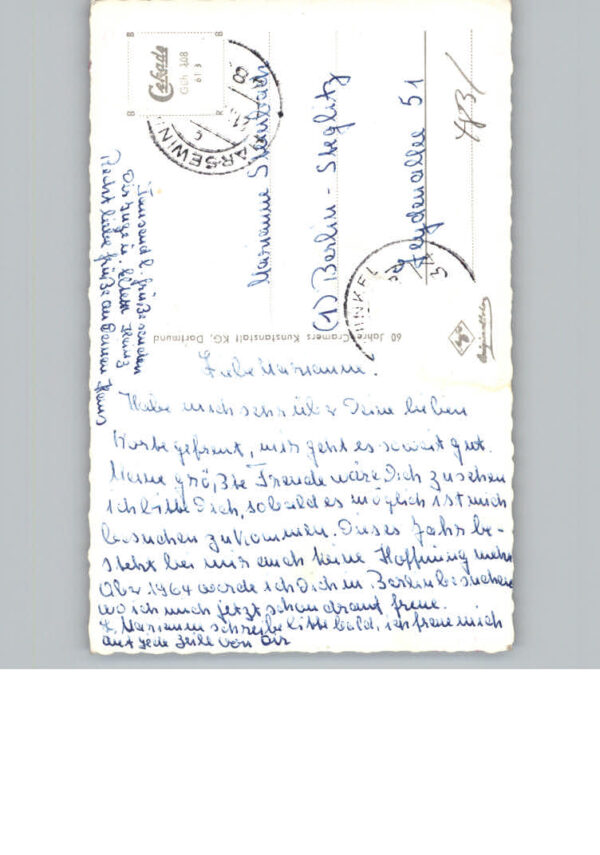 Cekade
Gch 108
613
HARSEWIN
Marianne Steinbach
(1) Berlin - Steglitz
Leydenallee 51
WINKEL
60 Jahre Cramers Kunstanstalt KG, Dortmund
Liebe Marianne.
Habe mich sehr über Deine lieben
Worte gefreut, mir geht es soweit gut.
Meine größte Freude wäre Dich zu sehen
ich bitte Dich, sobald es möglich ist mich
besuchen zu kommen. Dieses Jahr be-
steht bei mir auch keine Hoffnung mehr
Aber 1964 werde ich Dich in Berlin besuchen
wo ich mich jetzt schon drauf freue.
L. Marianne schreibe bitte bald, ich freue mich
auf jede Zeile von Dir
Tausend l. Grüße senden
Dir Inge u. Heinz
Recht liebe Grüße an Deinen Hans